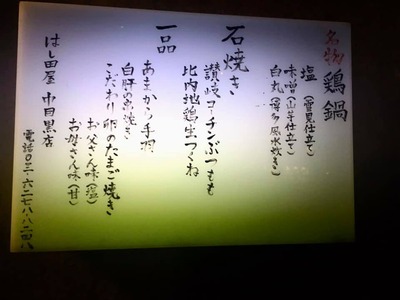 名物 鶏鍋
塩(雪見仕立て)
味噌(山芋仕立て)
白丸(博多風水炊き)
石焼き
讃岐コーチンぶつもも
比内地鶏生つくね
一品
あまから手羽
白肝の
こだわり卵のたまご焼き
お父さん味(塩)
お母さん味(甘)
はし田屋 中目黒店
電話〇三-六二七八-八二四八